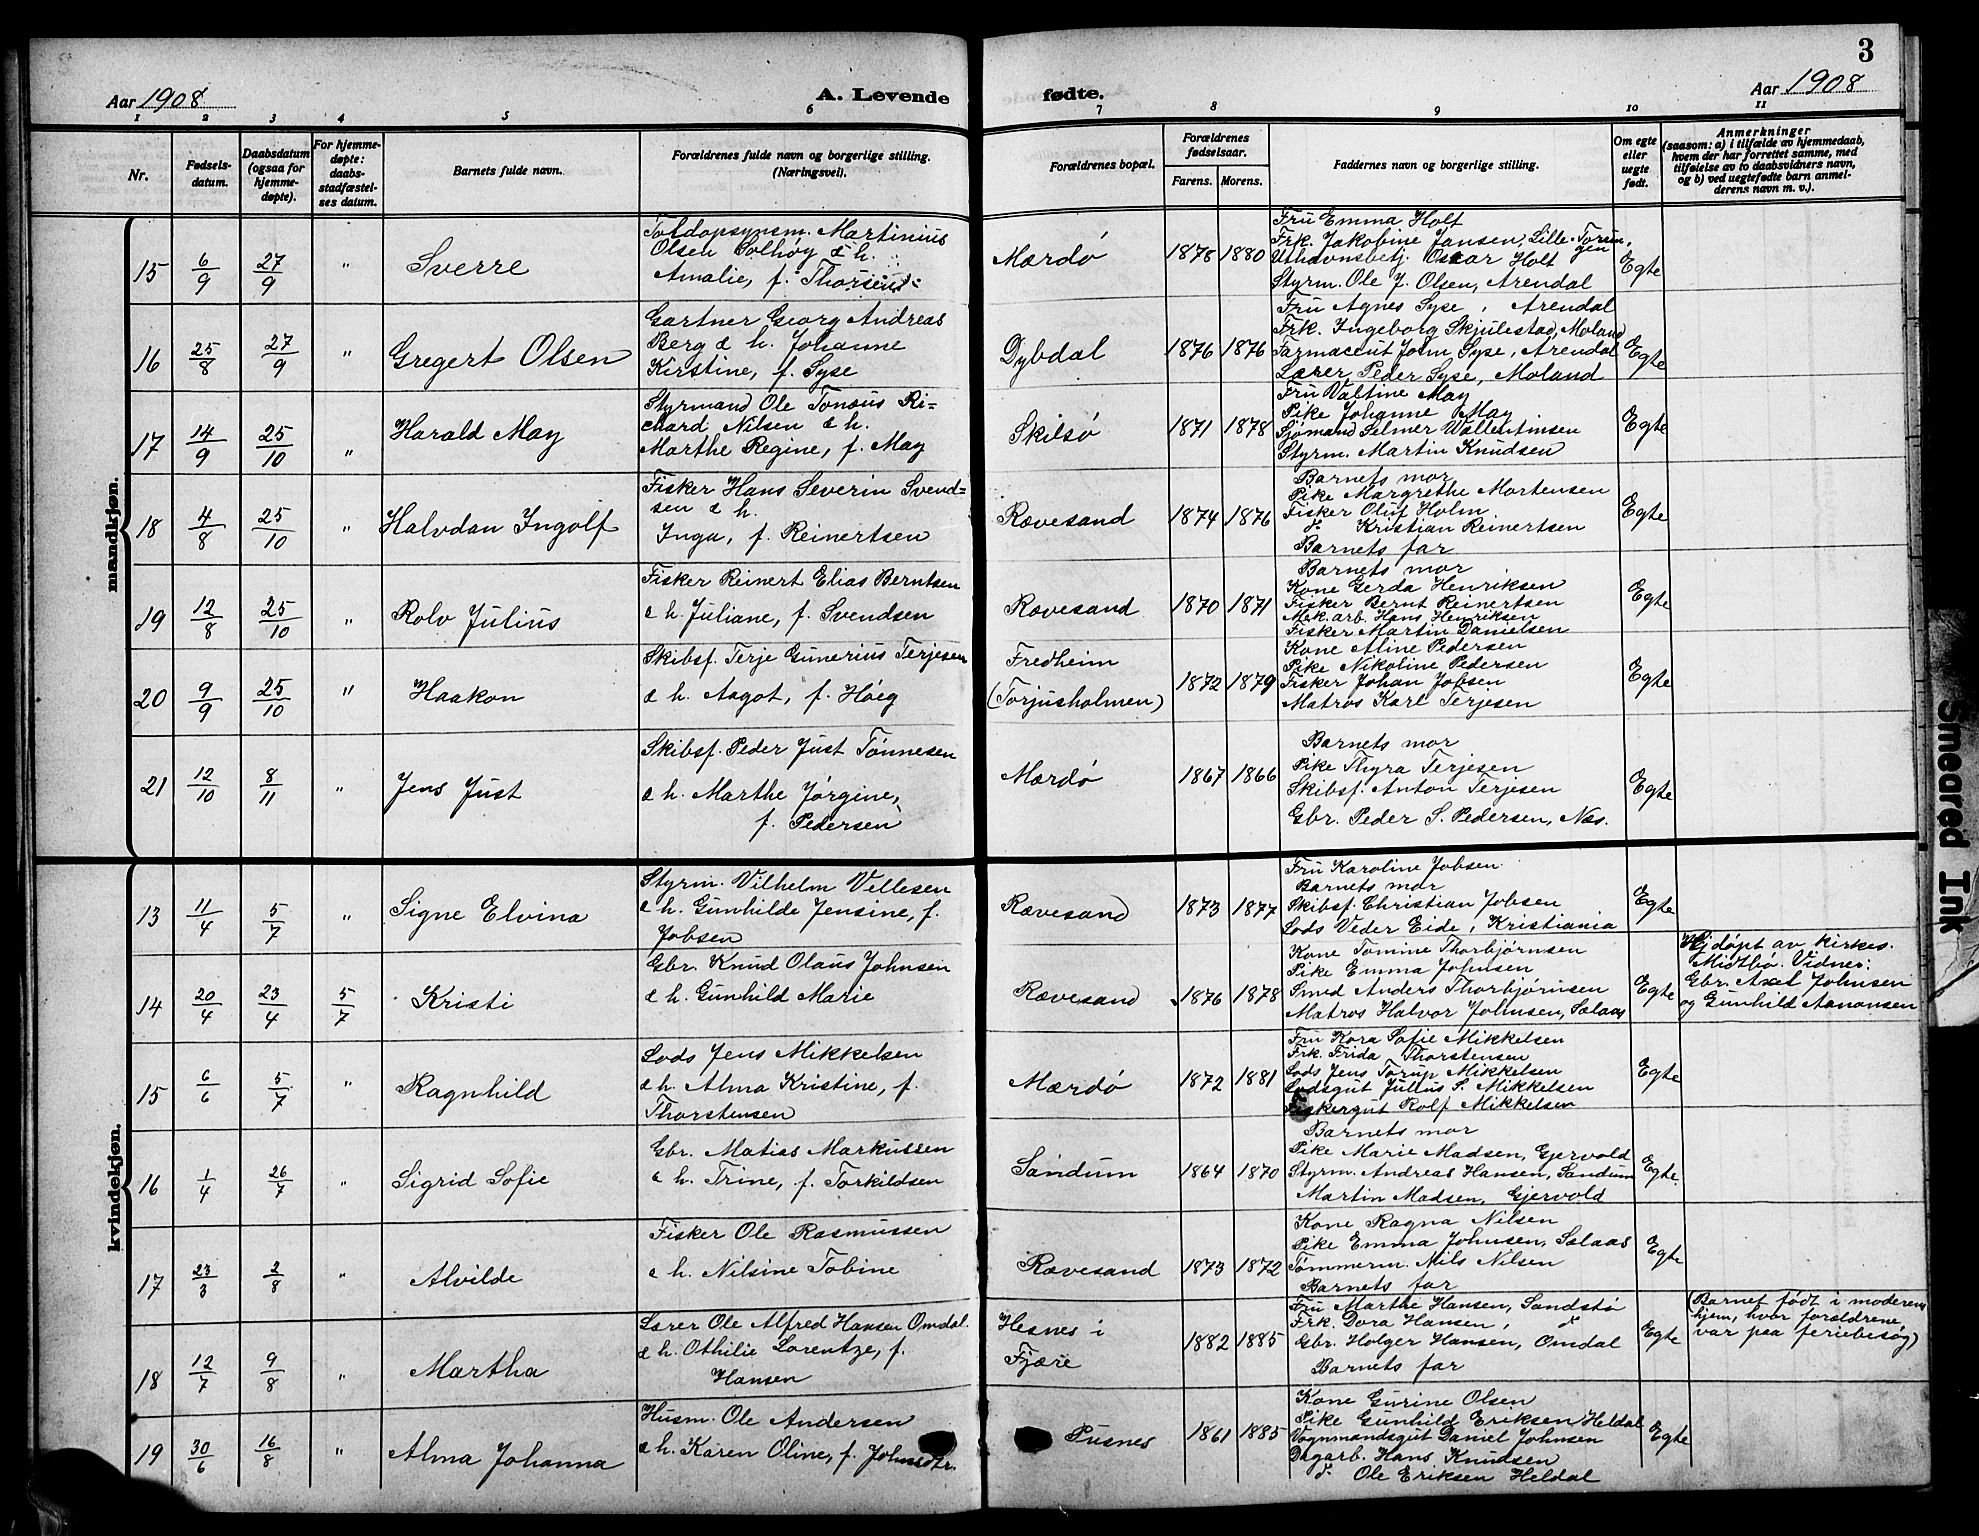 3
Aar 1908
A. Levende fødte.
Aar 1908
1 2 3 4 5 6 7 8 9 10 11
Nr.
Fødsels-
datum.
Daabsdatum
(ogsaa for
hjemme-
døpte).
For hjemme-
døpte:
daabs-
stadfæstel-
ses datum.
Barnets fulde navn.
Forældrenes fulde navn og borgerlige stilling.
(Næringsvei).
Forældrenes bopæl.
Forældrenes
fødselsaar.
Farens. Morens.
Faddernes navn og borgerlige stilling.
Om egte
eller
uegte
født.
Anmerkninger
(saasom: a) i tilfælde av hjemmedaab,
hvem der har forrettet samme, med
tilføielse av to daabsvidners navn,
og b) ved uegtefødte barn anmel-
derens navn m. v.).
mandkjøn.
15 6/9 27/9 " Sverre
Toldopsynsm. Martinius
Olsen Solhøy & h.
Amalie, f. Thorsen
Mærdö 1878 1880
Fru Emma Holt
Frk. Jakobine Jansen, Lille-Torun-
gen
Uthavnsbetj. Oscar Holt
Styrm. Ole J. Olsen, Arendal
Egte
16 25/8 27/9 " Gregert Olsen
Gartner Georg Andreas
Berg & h. Johanne
Kirstine, f. Syse
Dybdal 1876 1876
Fru Agnes Syse, Arendal
Frk. Ingeborg Skjulestad, Moland
Farmaceut John Syse, Arendal
Lærer Peder Syse, Moland
Egte
17 14/9 25/10 " Harald May
Styrmand Ole Tonæus Ri=
chard Nilsen & h.
Marthe Regine, f. May
Skilsö 1871 1878
Fru Valtine May
Pike Johanne May
Sjømand Selmer Wallentinsen
Styrm. Martin Knudsen
Egte
18 4/8 25/10 " Halvdan Ingolf
Fisker Hans Severin Svend=
sen & h.
Inga, f. Reinertsen
Rævesand 1874 1876
Barnets mor
Pike Margrethe Mortensen
Fisker Oluf Holm
do. Kristian Reinertsen
Barnets far
Egte
19 12/8 25/10 " Rolv Julius
Fisker Reinert Elias Berntsen
& h. Juliane, f. Svendsen
Rævesand 1870 1871
Barnets mor
Kone Gerda Henriksen
Fisker Bernt Reinertsen
Mek.arb. Hans Henriksen
Fisker Martin Danielsen
Egte
20 9/9 25/10 " Haakon
Skibsf. Terje Gunerius Terjesen
& h. Aagot, f. Höeg
Fredheim
(Torjusholmen) 1872 1879
Kone Aline Pedersen
Pike Nikoline Pedersen
Fisker Johan Jobsen
Matros Karl Terjesen
Egte
21 12/10 8/11 " Jens Just
Skibsf. Peder Just Tönnesen
& h. Marthe Jörgine,
f. Pedersen
Mærdö 1867 1866
Barnets mor
Pike Thyra Terjesen
Skibsf. Anton Terjesen
Gbr. Peder S. Pedersen, Næs.
Egte
kvindekjøn.
13 11/4 5/7 " Signe Elvina
Styrm. Vilhelm Vellesen
& h. Gunhilde Jensine, f.
Jobsen
Rævesand 1873 1877
Fru Karoline Jobsen
Barnets mor
Skibsf. Christian Jobsen
Lods Veder Eide, Kristiania
Egte
14 20/4 23/4 5/7 Kristi
Gbr. Knud Olaus Johnsen
& h. Gunhild Marie
Rævesand 1876 1878
Kone Tomine Thorbjörnsen
Pike Emma Johnsen
Smed Anders Thorbjörnsen
Matros Halvor Johnsen, Salaas
Egte
Hj.döpt av kirkes.
Midtbö. Vidner:
Gbr. Axel Johnsen
og Gunhild Aanonsen
15 6/6 5/7 " Ragnhild
Lods Jens Mikkelsen
& h. Alma Kristine, f.
Thorstensen
Mærdö 1872 1881
Fru Kora Sofie Mikkelsen
Frk. Frida Thorstensen
Lods Jens Torup Mikkelsen
Lodsgut Julius S. Mikkelsen
Fiskergut Rolf Mikkelsen
Egte
16 1/4 26/7 " Sigrid Sofie
Gbr. Matias Markussen
& h. Trine, f. Torkildsen
Sandum 1864 1870
Barnets mor
Pike Marie Madsen, Gjervold
Styrm. Andreas Hansen, Sandum
Martin Madsen, Gjervold
Egte.
17 23/3 2/8 " Alvilde
Fisker Ole Rasmussen
& h. Nilsine Tobine
Rævesand 1873 1872
Kone Ragna Nilsen
Pike Emma Johnsen, Salaas
Tömmerm. Nils Nilsen
Barnets far
Egte
18 12/7 9/8 " Martha
Lærer Ole Alfred Hansen Omdal
& h. Othilie Lorentze, f.
Hansen
Hesnes i
Fjære 1882 1885
Fru Marthe Hansen, Sandstö
Frk. Dora Hansen, do
Gbr. Holger Hansen, Omdal
Barnets far
Egte
(Barnet født i moderens
hjem, hvor forældrene
var paa feriebesøg)
19 30/6 16/8 " Alma Johanna
Husm. Ole Andersen
& h. Karen Oline, f. Johnsdtr.
Pusnes 1861 1885
Kone Gurine Olsen
Pike Gunhild Eriksen Heldal
Vognmandsgut Daniel Johnsen
Dagarb. Hans Knudsen
do. Ole Eriksen Heldal
Egte
Smeared Ink